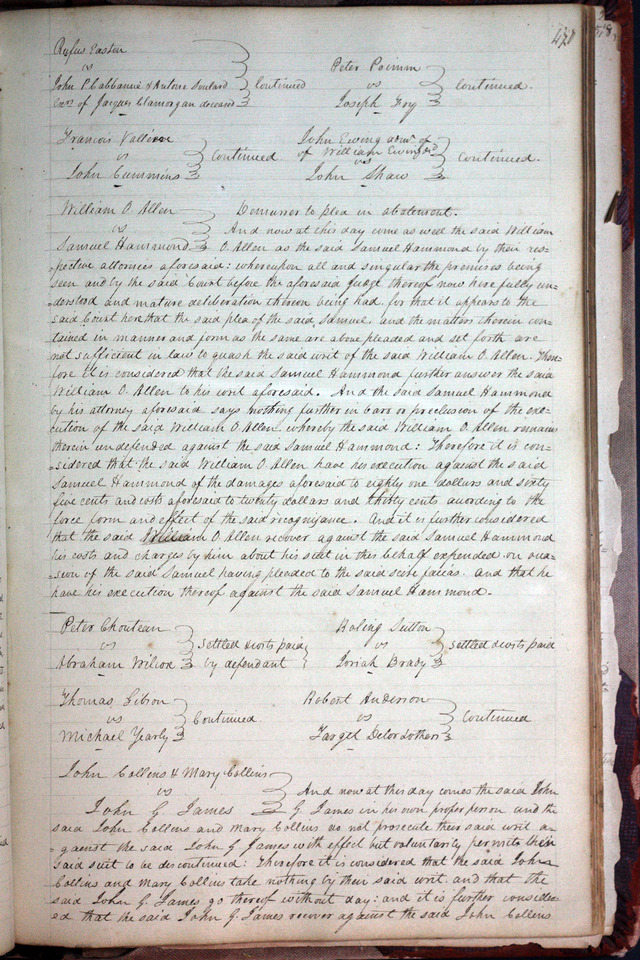 471
Rufus Easton
vs
John P. Cabbanné & Antoine Soulard
Exrs of Jacques Clamorgan deceased
Continued
Peter Primm
vs
Joseph Foy
Continued.
Francois Valleren
vs
John Cummins
Continued
John Ewing admr. of
of William Ewing dcd
vs
John Shaw
Continued.
William O. Allen
vs
Samuel Hammond
Demurrer to plea in abatement.
And now at this day come as well the said William
O. Allen as the said Samuel Hammond by their res-
=pective attornies aforesaid: whereupon all and singular the premises being
seen and by the said Court before the aforesaid Judge thereof now here fully un-
derstood and mature deliberation thereon being had, for that it appears to the
said Court here that the said plea of the said, Samuel, and the matters therein con-
tained in manner and form as the same are above pleaded and set forth are
not sufficient in law to quash the said writ of the said William O. Allen. There-
fore it is considered that the said Samuel Hammond further answer the said
William O. Allen to his writ aforesaid. And the said Samuel Hammond
by his attorney aforesaid says nothing further in bar or preclusion of the exe-
cution of the said William O. Allen, whereby the said William O. Allen remains
therein undefended against the said Samuel Hammond: Therefore it is con-
=sidered that the said William O. Allen have his execution against the said
Samuel Hammond of the damages aforesaid to eighty one dollars and sixty
five cents and costs aforesaid to twenty dollars and thirty cents according to the
force form and effect of the said recognizance. And it is further considered
that the said William O Allen recover against the said Samuel Hammond
his costs and charges by him about his suit in this behalf expended on occa-
=sion of the said Samuel having pleaded to the said scire facias. And that he
have his execution thereof against the said Samuel Hammond.
Peter Chouteau
vs
Abraham Wilcox
Settled & costs paid
by defendant
Roling Sutton
vs
Josiah Brady
Settled & costs paid
Thomas Gibson
vs
Michael Yearly
Continued
Robert Anderson
vs
Target Delordothers
Continued
John Collins & Mary Collins
vs
John G. James
And now at this day comes the said John
G. James in his own proper person and the
said John Collins and Mary Collins do not prosecute their said writ a-
gainst the said John G James with effect but voluntarily permits their
said suit to be discontinued: Therefore it is considered that the said John
Collins and Mary Collins take nothing by their said writ. and that the
said John G. James go thereof without day: and it is further consider-
ed that the said John G James recover against the said John Collins